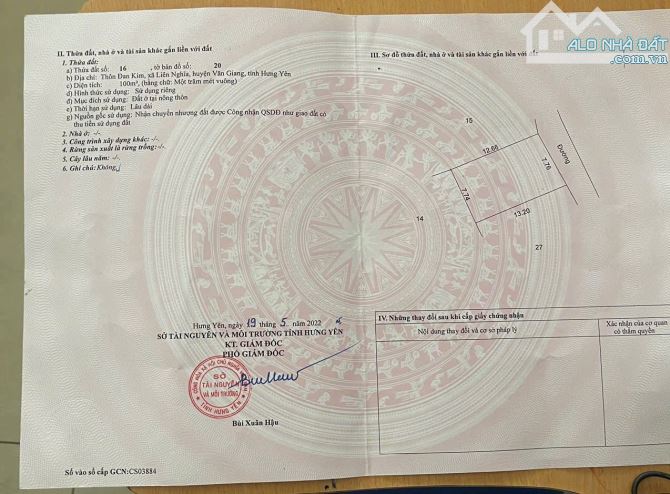 ALO NHÀ ĐẤT
II. Thửa đất, nhà ở và tài sản khác gắn liền với đất
1. Thửa đất:
a) Thửa đất số: 16 , tờ bản đồ số: 20
b) Địa chỉ: Thôn Đan Kim, xã Liên Nghĩa, huyện Văn Giang, tỉnh Hưng Yên
c) Diện tích: 100m², (bằng chữ: Một trăm mét vuông)
d) Hình thức sử dụng: Sử dụng riêng
đ) Mục đích sử dụng: Đất ở tại nông thôn
e) Thời hạn sử dụng: Lâu dài
g) Nguồn gốc sử dụng: Nhận chuyển nhượng đất được Công nhận QSDĐ như giao đất có
thu tiền sử dụng đất
2. Nhà ở: -/-
3. Công trình xây dựng khác: -/-
4. Rừng sản xuất là rừng trồng: -/-
5. Cây lâu năm: -/-
6. Ghi chú: Không./
Hưng Yên, ngày 19 tháng 5 năm 2022
SỞ TÀI NGUYÊN VÀ MÔI TRƯỜNG TỈNH HƯNG YÊN
KT. GIÁM ĐỐC
PHÓ GIÁM ĐỐC
SỞ
TÀI NGUYÊN
VÀ MÔI TRƯỜNG
TỈNH HƯNG YÊN
Bùi Xuân Hậu
Số vào sổ cấp GCN:CS03884
III. Sơ đồ thửa đất, nhà ở và tài sản khác gắn liền với đất
15
12.66
7.76
Đường
7.74
13.20
14
27
IV. Những thay đổi sau khi cấp giấy chứng nhận
Nội dung thay đổi và cơ sở pháp lý
Xác nhận của cơ quan
có thẩm quyền